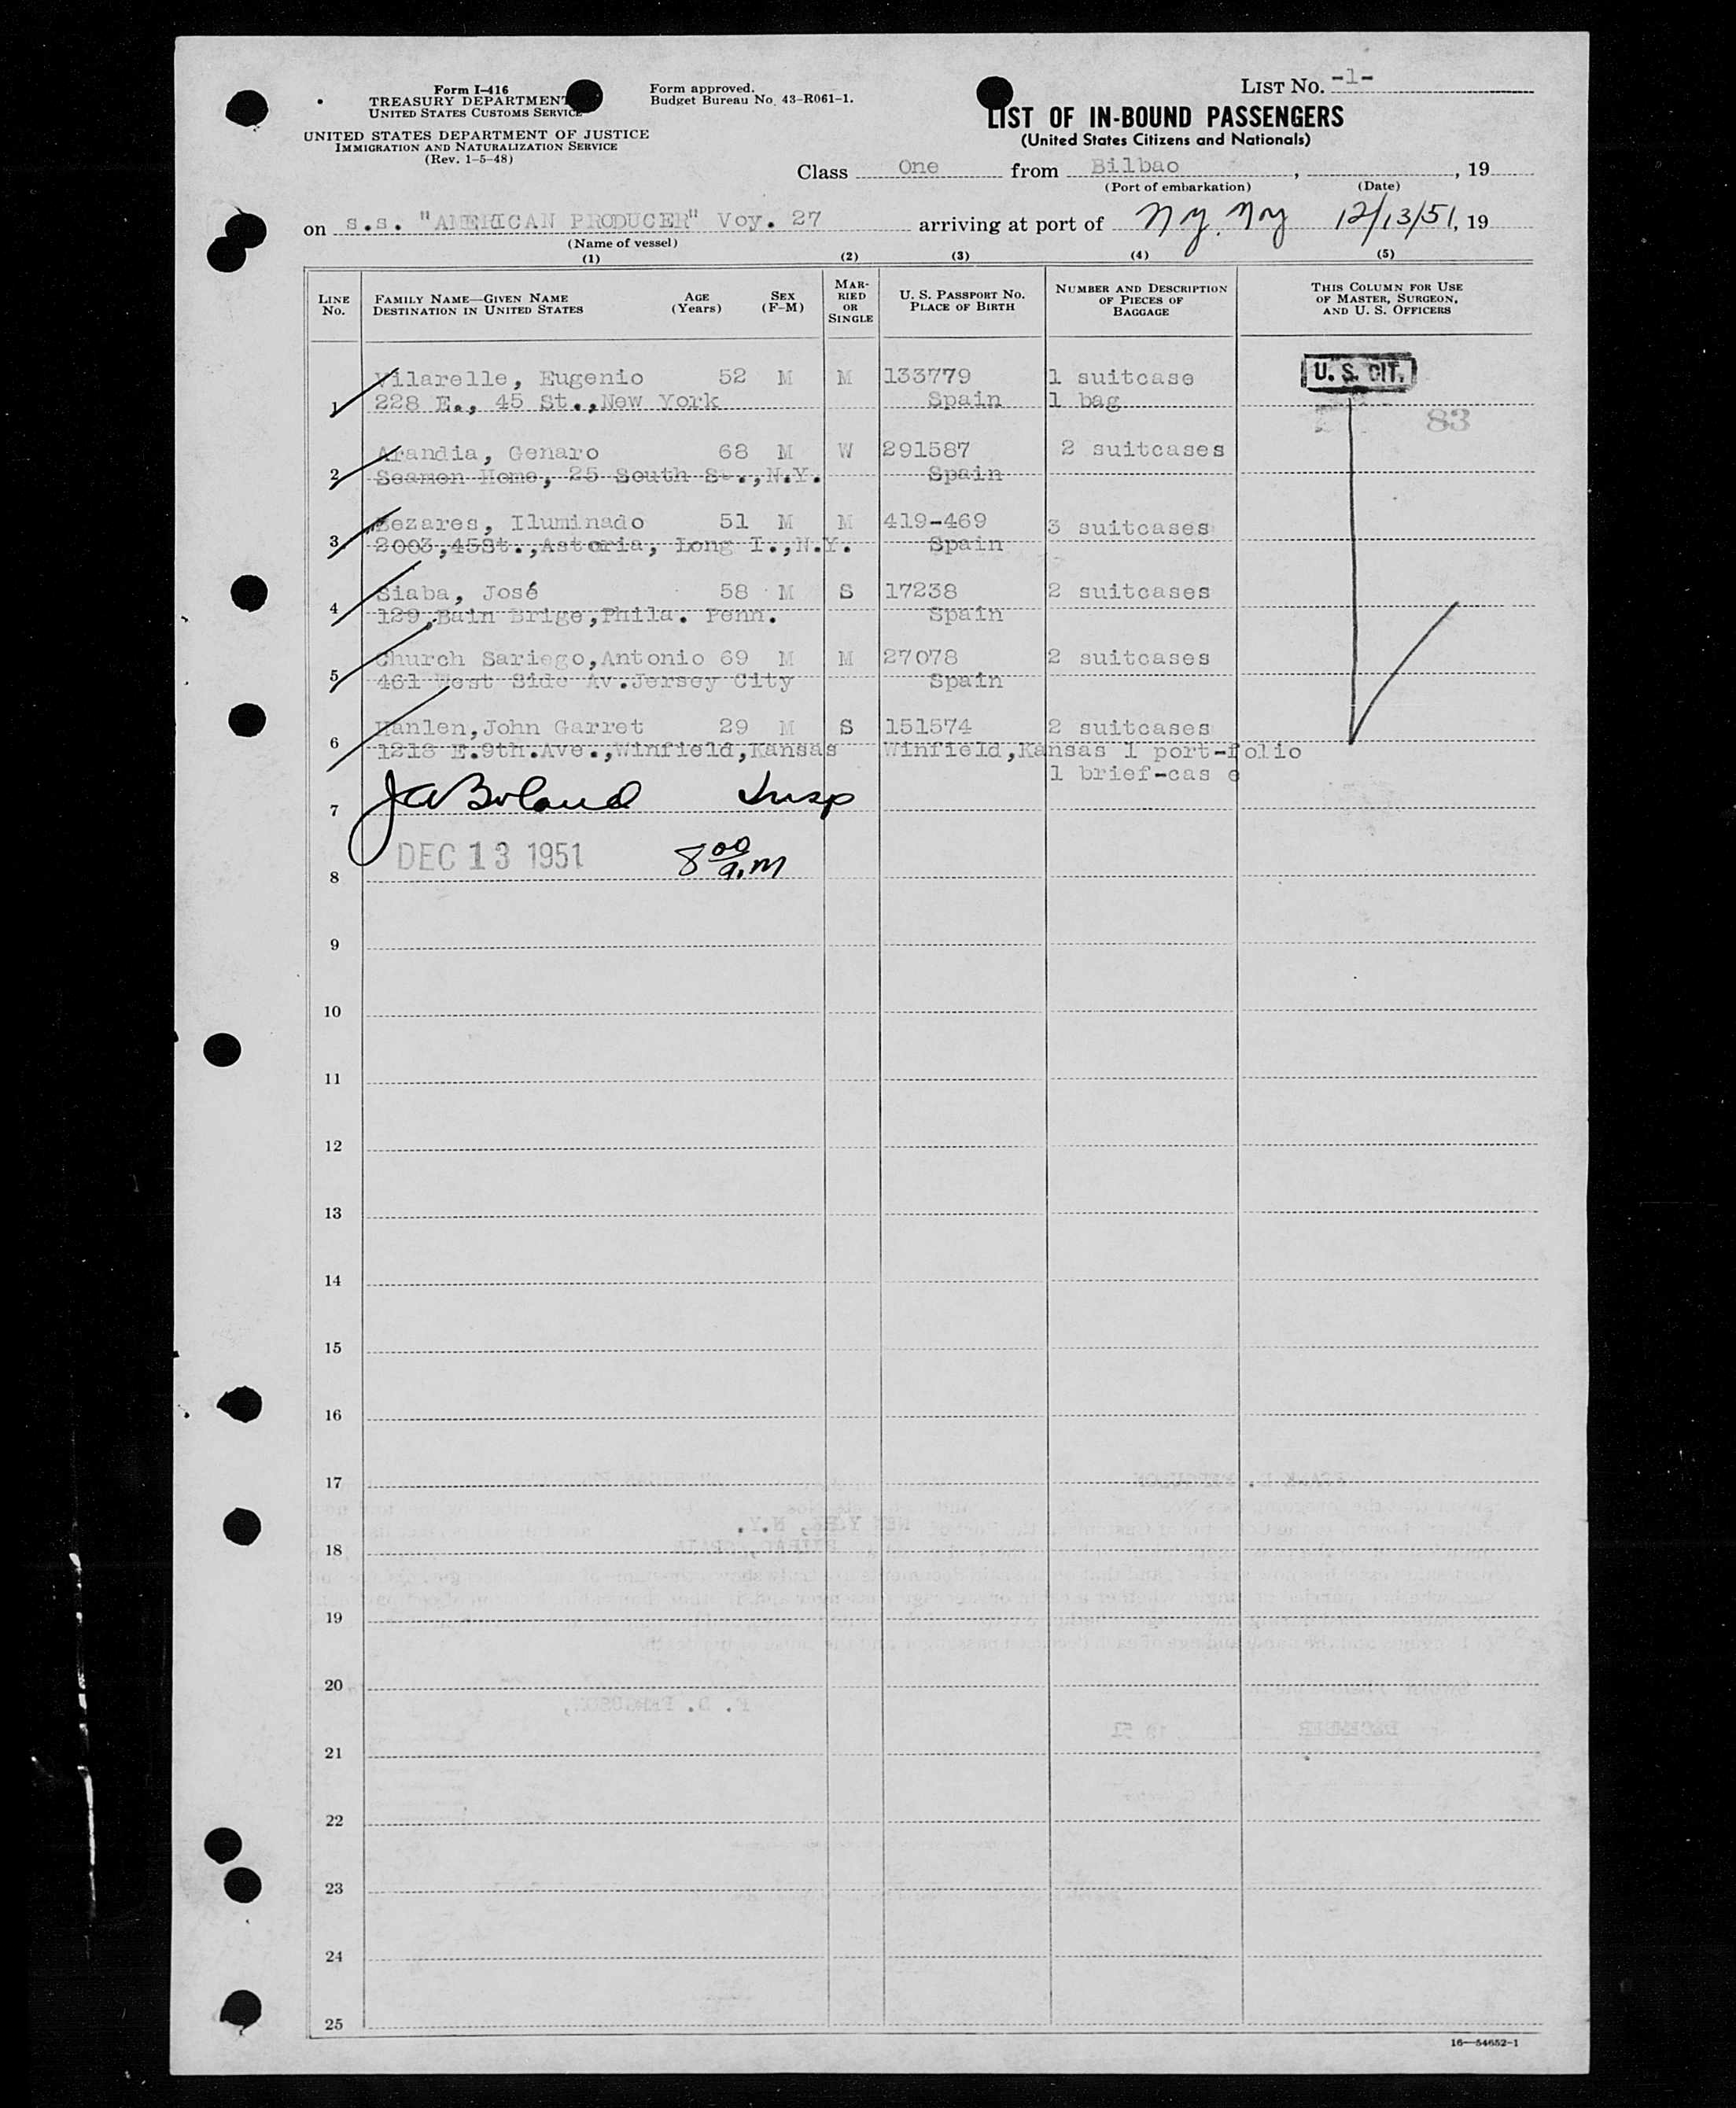 Form I-416
TREASURY DEPARTMENT
UNITED STATES CUSTOMS SERVICE
UNITED STATES DEPARTMENT OF JUSTICE
IMMIGRATION AND NATURALIZATION SERVICE
(Rev. 1-5-48)
Form approved.
Budget Bureau No. 43-R061-1.
LIST NO. -1-
LIST OF IN-BOUND PASSENGERS
(United States Citizens and Nationals)
Class One from Bilbao, , 19
(Port of embarkation) (Date)
on s.s. "AMERICAN PRODUCER" Voy. 27 arriving at port of N.Y. N.Y. 12/13/51, 19
(Name of vessel)
(1) (2) (3) (4) (5)
LINE NO. FAMILY NAME—GIVEN NAME DESTINATION IN UNITED STATES AGE (Years) SEX (F-M) MARRIED OR SINGLE U. S. PASSPORT NO. PLACE OF BIRTH NUMBER AND DESCRIPTION OF PIECES OF BAGGAGE THIS COLUMN FOR USE OF MASTER, SURGEON, AND U. S. OFFICERS
Vilarelle, Eugenio 52 M M 133779 1 suitcase U. S. CIT.
1 228 E., 45 St.,New York Spain 1 bag 83
Arandia, Genaro 68 M W 291587 2 suitcases
2 Seamen Home, 25 South St.,N.Y. Spain
Bezares, Iluminado 51 M M 419-469 3 suitcases
3 2003,45St.,Astoria, Long I.,N.Y. Spain
Siaba, José 58 M S 17238 2 suitcases
4 129,Bain Brige,Phila. Penn. Spain
Church Sariego,Antonio 69 M M 27078 2 suitcases
5 461 West Side Av.Jersey City Spain
Hanlen,John Garret 29 M S 151574 2 suitcases
6 1218 E.9th.Ave.,Winfield,Kansas Winfield,Kansas 1 port-folio
1 brief-cas e
7 JA Boland Insp
DEC 13 1951 8 00 a.m
8
9
10
11
12
13
14
15
16
17
18
19
20
21
22
23
24
25
16—54652-1